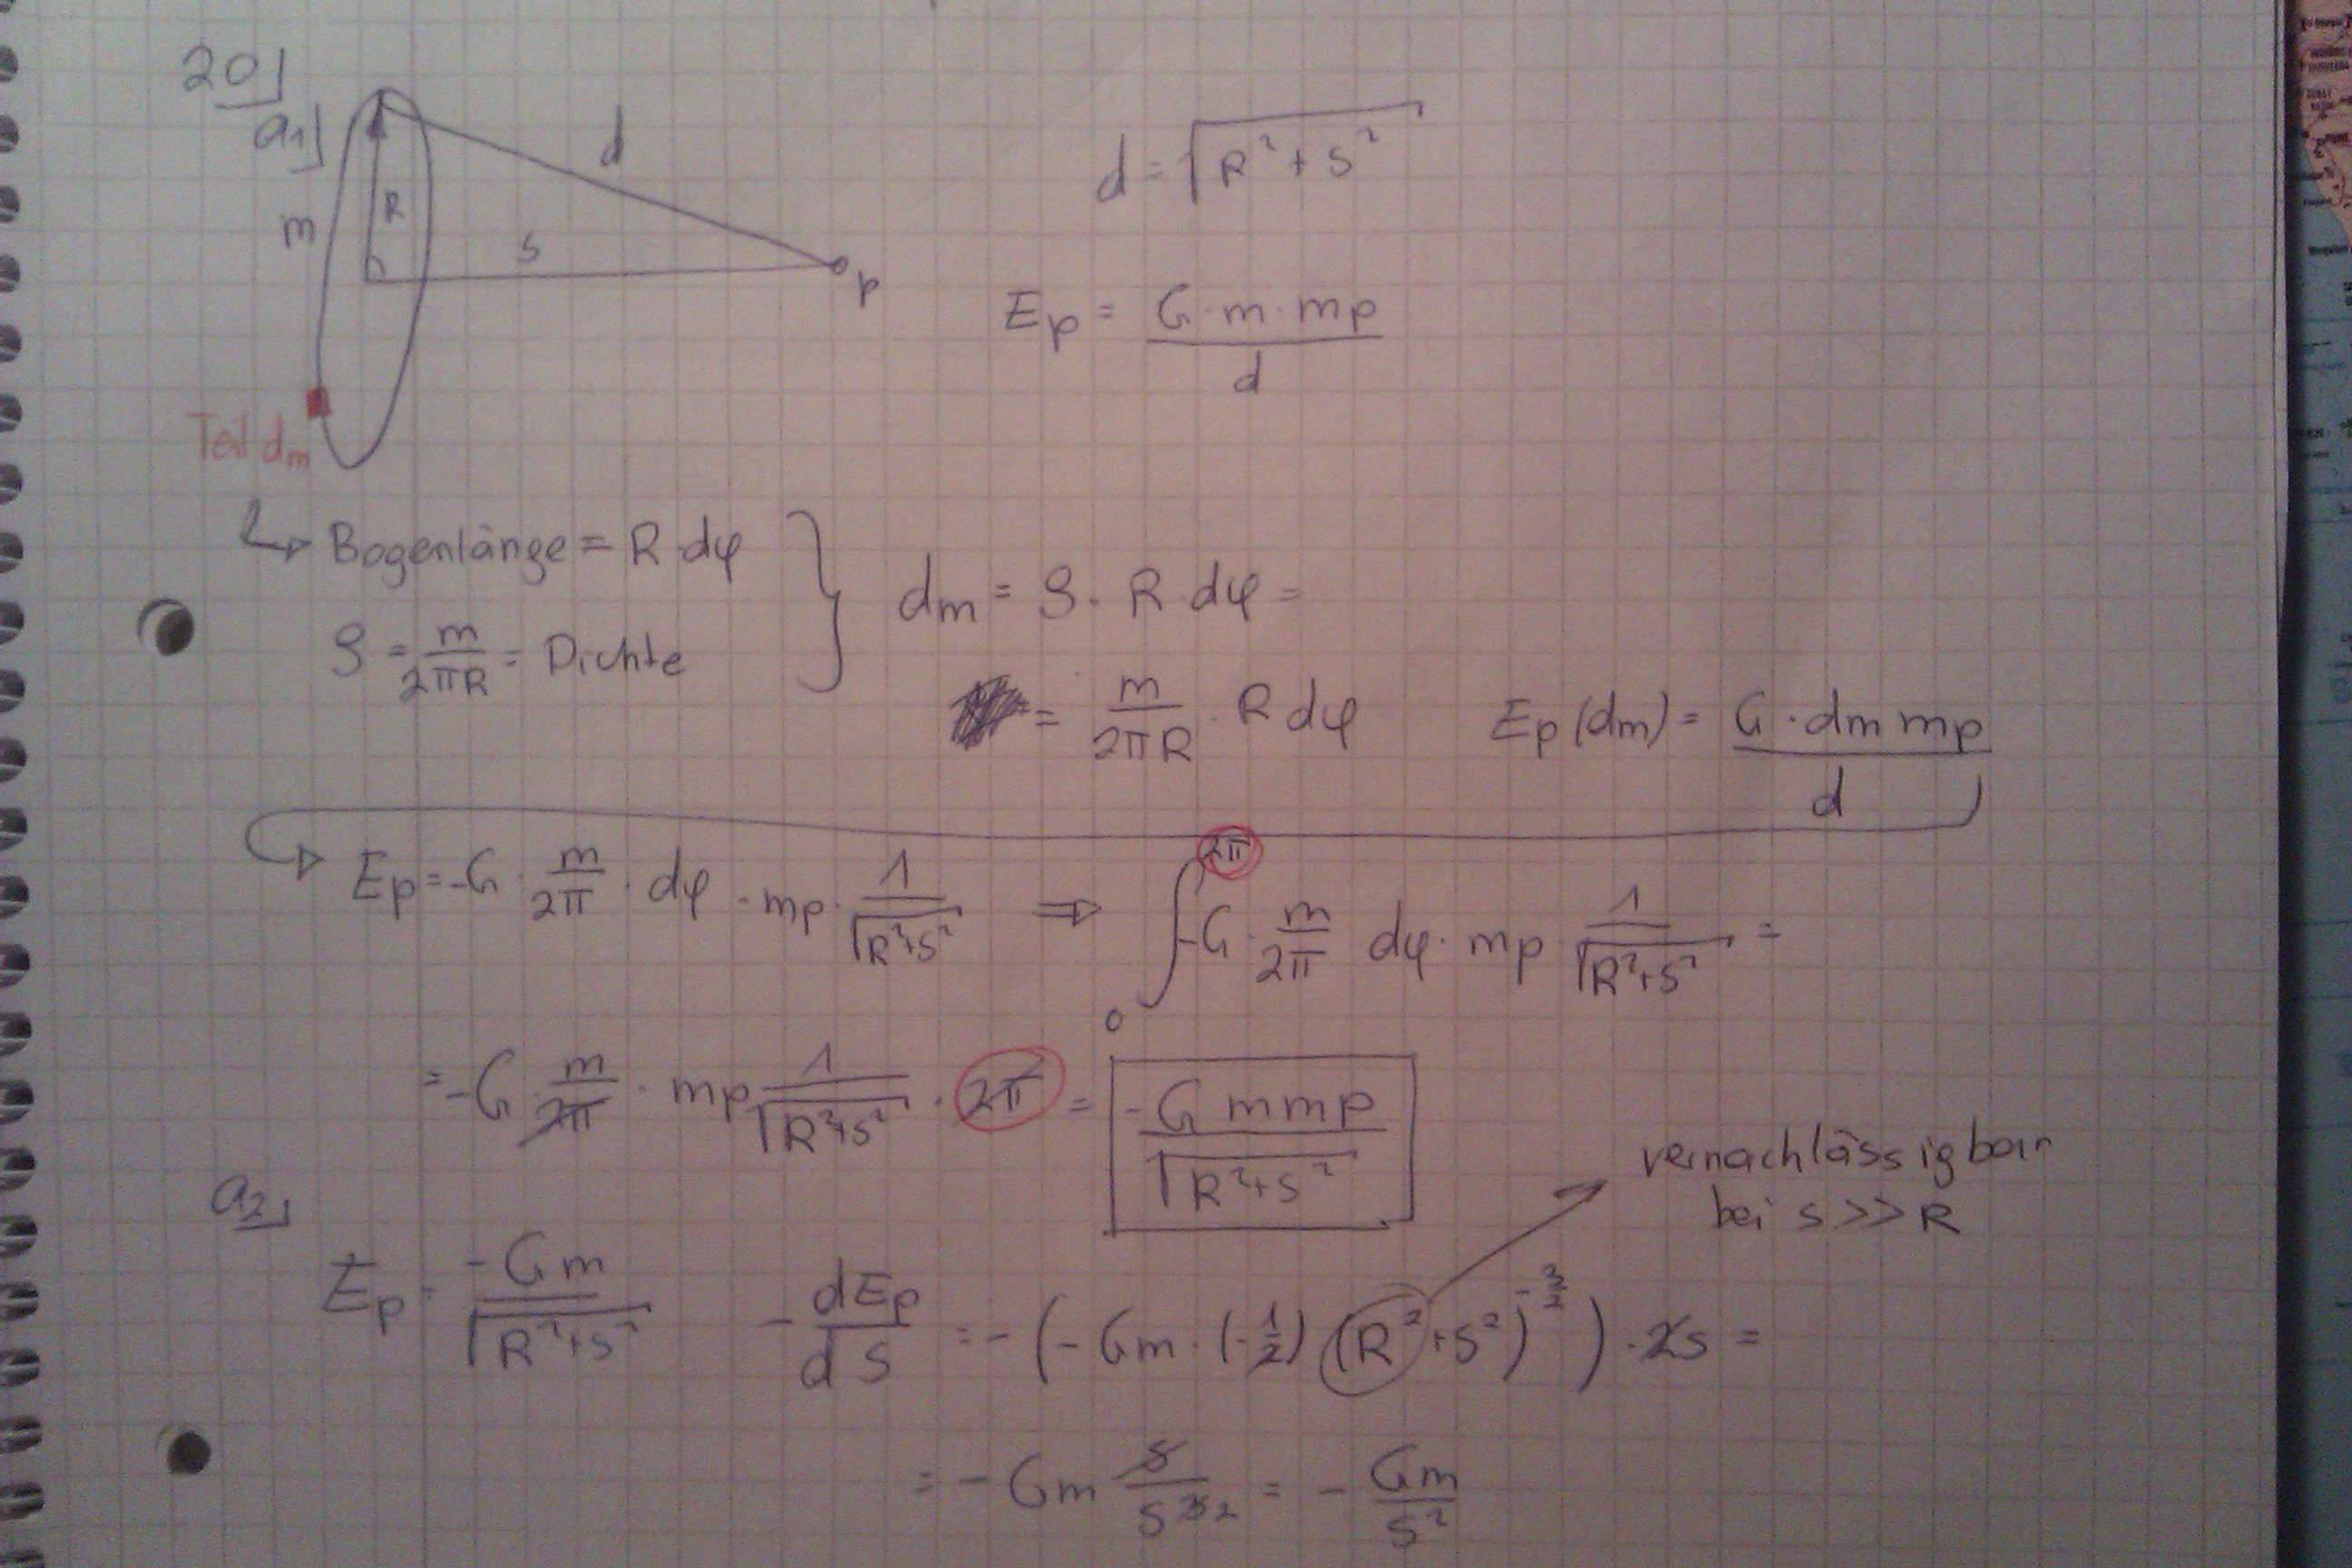 20)
a1)
m
R
d
s
p
Teil dm
d = √(R² + s²)
Ep = G · m · mp / d
↳ Bogenlänge = R dφ
ρ = m / 2πR = Dichte
dm = ρ · R · dφ =
= m / 2πR · R dφ
Ep (dm) = G · dm mp / d
Ep = -G · m / 2π · dφ · mp · 1 / √(R²+s²) ⇒ ∫₀^2π -G · m / 2π dφ · mp · 1 / √(R²+s²) =
= -G · m / 2π · mp 1 / √(R²+s²) · 2π = -G m mp / √(R²+s²)
vernachlässigbar
bei s >> R
a2)
Ep = -Gm / √(R²+s²) - dEp / ds = - (-Gm · (-1/2) (R² + s²)^-3/2) · 2s =
= - Gm s / s³2 = - Gm / s²